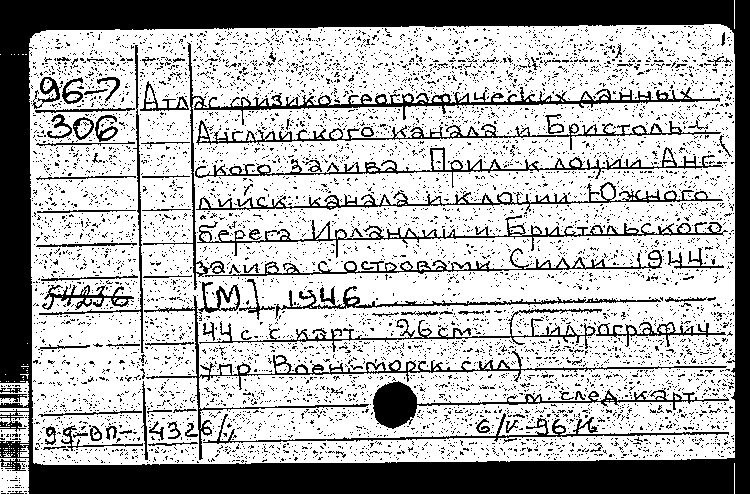 96-7 Атлас физико-географических данных
306 Английского канала и Бристоль-
ского залива. Прил. к лоции Анг-
лийск. канала и к лоции Южного
берега Ирландии и Бристольского
залива с островами Силли. 1944.
54236 [М.], 1946.
44 с. с карт. 26 см. (Гидрографич.
упр. Воен.-морск. сил)
см. след. карт.
95-ВП- 4326 6/V-96